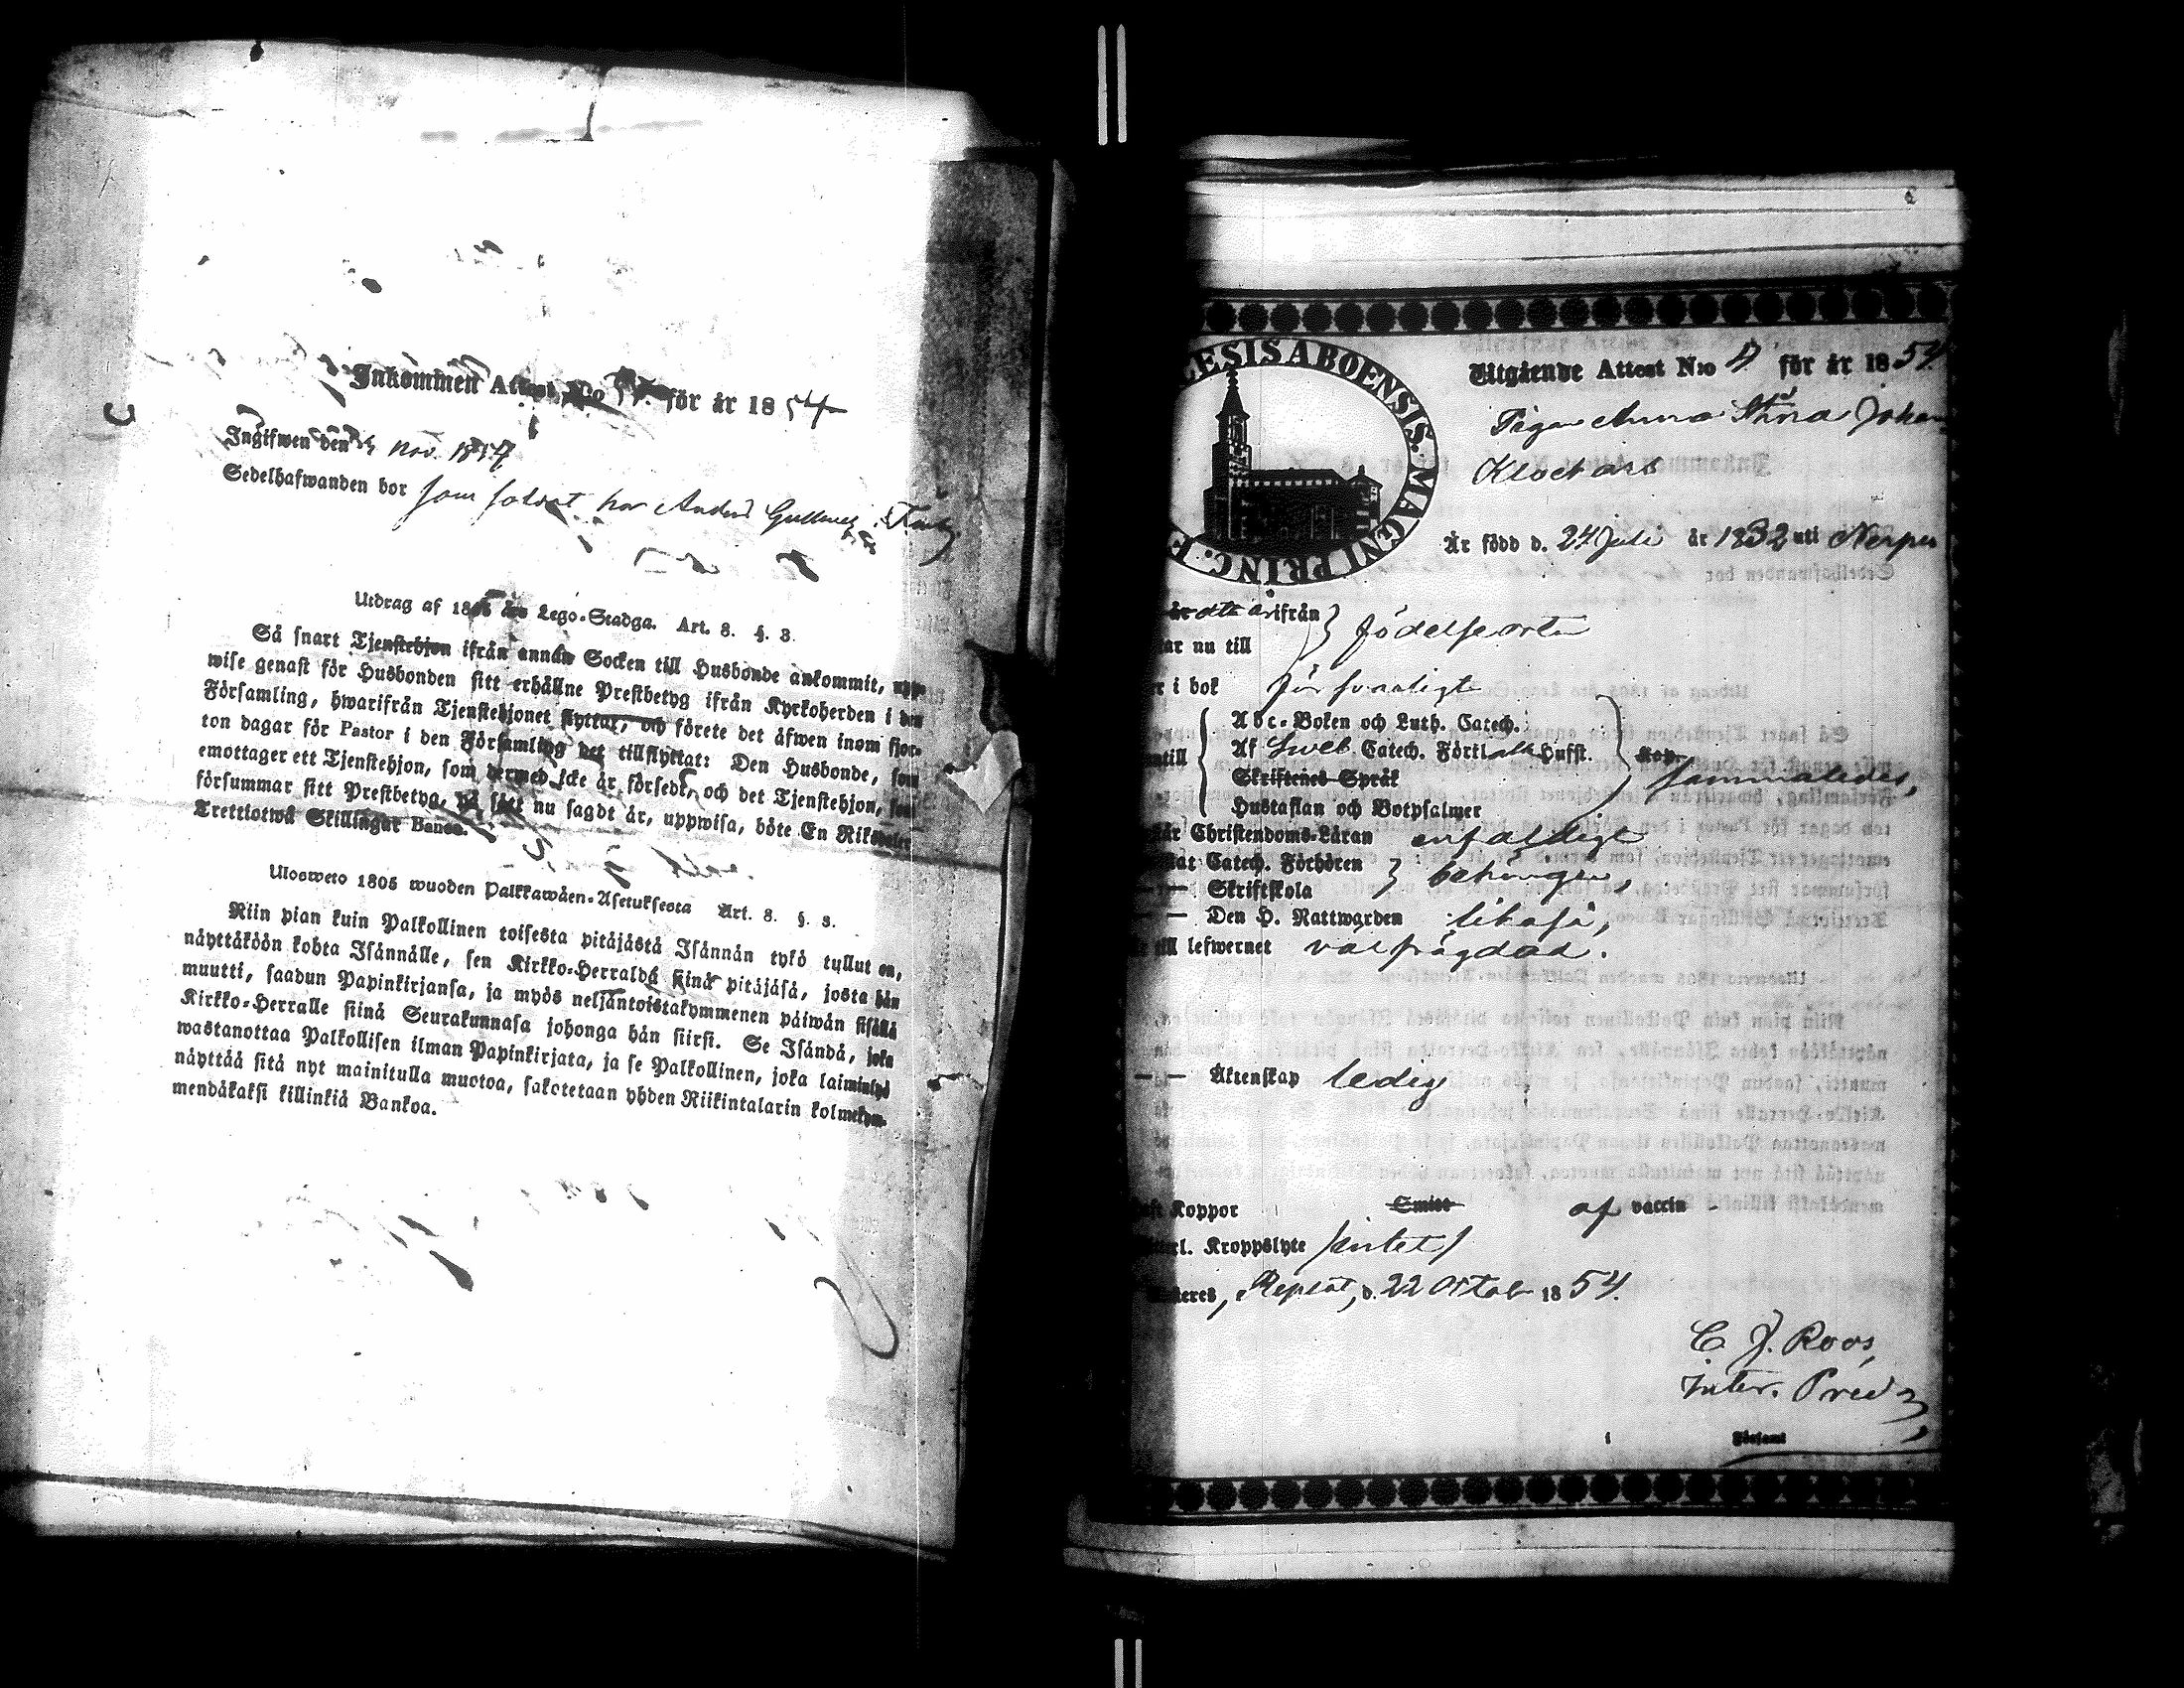 Inkommen Attest N:o för år 1854
Ingifwen den nov. 1854
Sedelhafwanden bor som soldat hos Anders
Utdrag af 1805 års Lego-Stadga. Art. 8. §. 3.
Så snart Tjenstehjon ifrån annan Socken till Husbonde ankommit, upp-
wise genast för Husbonden sitt erhållne Prestbetyg ifrån Kyrkoherden i den
Församling, hwarifrån Tjenstehjonet flyttat, och förete det åfwen inom fjor-
ton dagar för Pastor i den Församling det tillflyttat: Den Husbonde, som
emottager ett Tjenstehjon, som dermed icke år försedt, och det Tjenstehjon, som
försummar sitt Prestbetyg, på sått nu sagdt år, uppwisa, böte En Riksdaler
Trettiotwå Skillingar Banco.
Ulosweto 1805 wuoden Palkkawåen-Asetuksesta Art. 8. §. 3.
Niin pian kuin Palkollinen toisesta pitåjåstå Isånnån tykö tullut on,
nåyttåköön kohta Isånnålle, sen Kirkko-Herralda siinå pitåjåså, josta hån
muutti, saadun Papinkirjansa, ja myös neljåntoistakymmenen påiwån sisållå
Kirkko-Herralle siinå Seurakunnasa johonga hån siirsi. Se Isåndå, joka
wastanottaa Palkollisen ilman Papinkirjata, ja se Palkollinen, joka laiminlyö
nåyttåå sitå nyt mainitulla muotoa, sakotetaan yhden Riikintalarin kolmekym-
mendåkaksi killinkiå Bankoa.
LESIS ABOENSIS. MAGNI PRINC. F
Utgående Attest N:o 4 för år 1854.
Pigan Anna Stina Johan
Klockars
År född d. 24 Juli år 1832 uti Nerpes
ifrån
ar nu till
födelseorten
r i bok försvarligt
Abc-Boken och Luth. Catech.
Af Sveb. Catech. Förkl. Husst.
Skriftenes Språk
Hustaflan och Botpsalmer
ntill
sammaledes,
Christendoms-Låran enfaldigt
Catech. Förhören
Skriftskola
behörigen,
Den H. Nattwarden likaså,
till lefwernet välfrägdad.
Åktenskap ledig
Koppor Smitt af vaccin
Kroppslyte /intet/
teres, Replot, d. 22 Octob 1854.
C. J. Roos,
Inter. Pred
i Församl